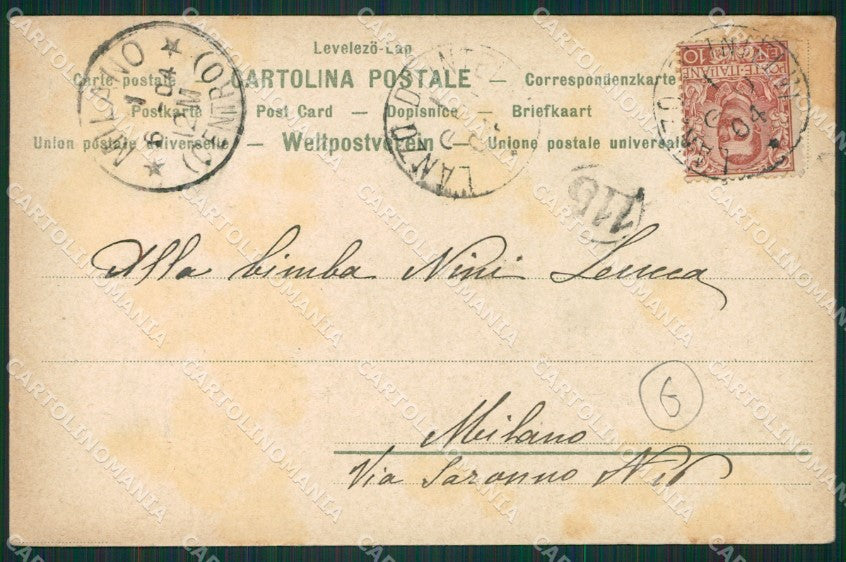 Levelező-Lap
Carte postale — CARTOLINA POSTALE — Correspondenzkarte
Postkarte — Post Card — Dopisnice — Briefkaart
Union postale universelle — Weltpostverein — Unione postale universale
MILANO
1
6-04
12M
(CENTRO)
LANZO D'INTELVI
04
115
Alla bimba Nini
6
Milano
Via Saronno
CARTOLINOMANIA